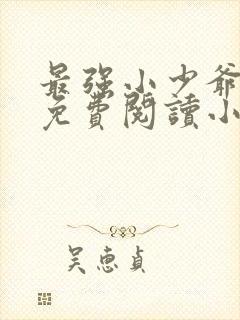 最强小少爷
免費閱讀小
吴惠貞